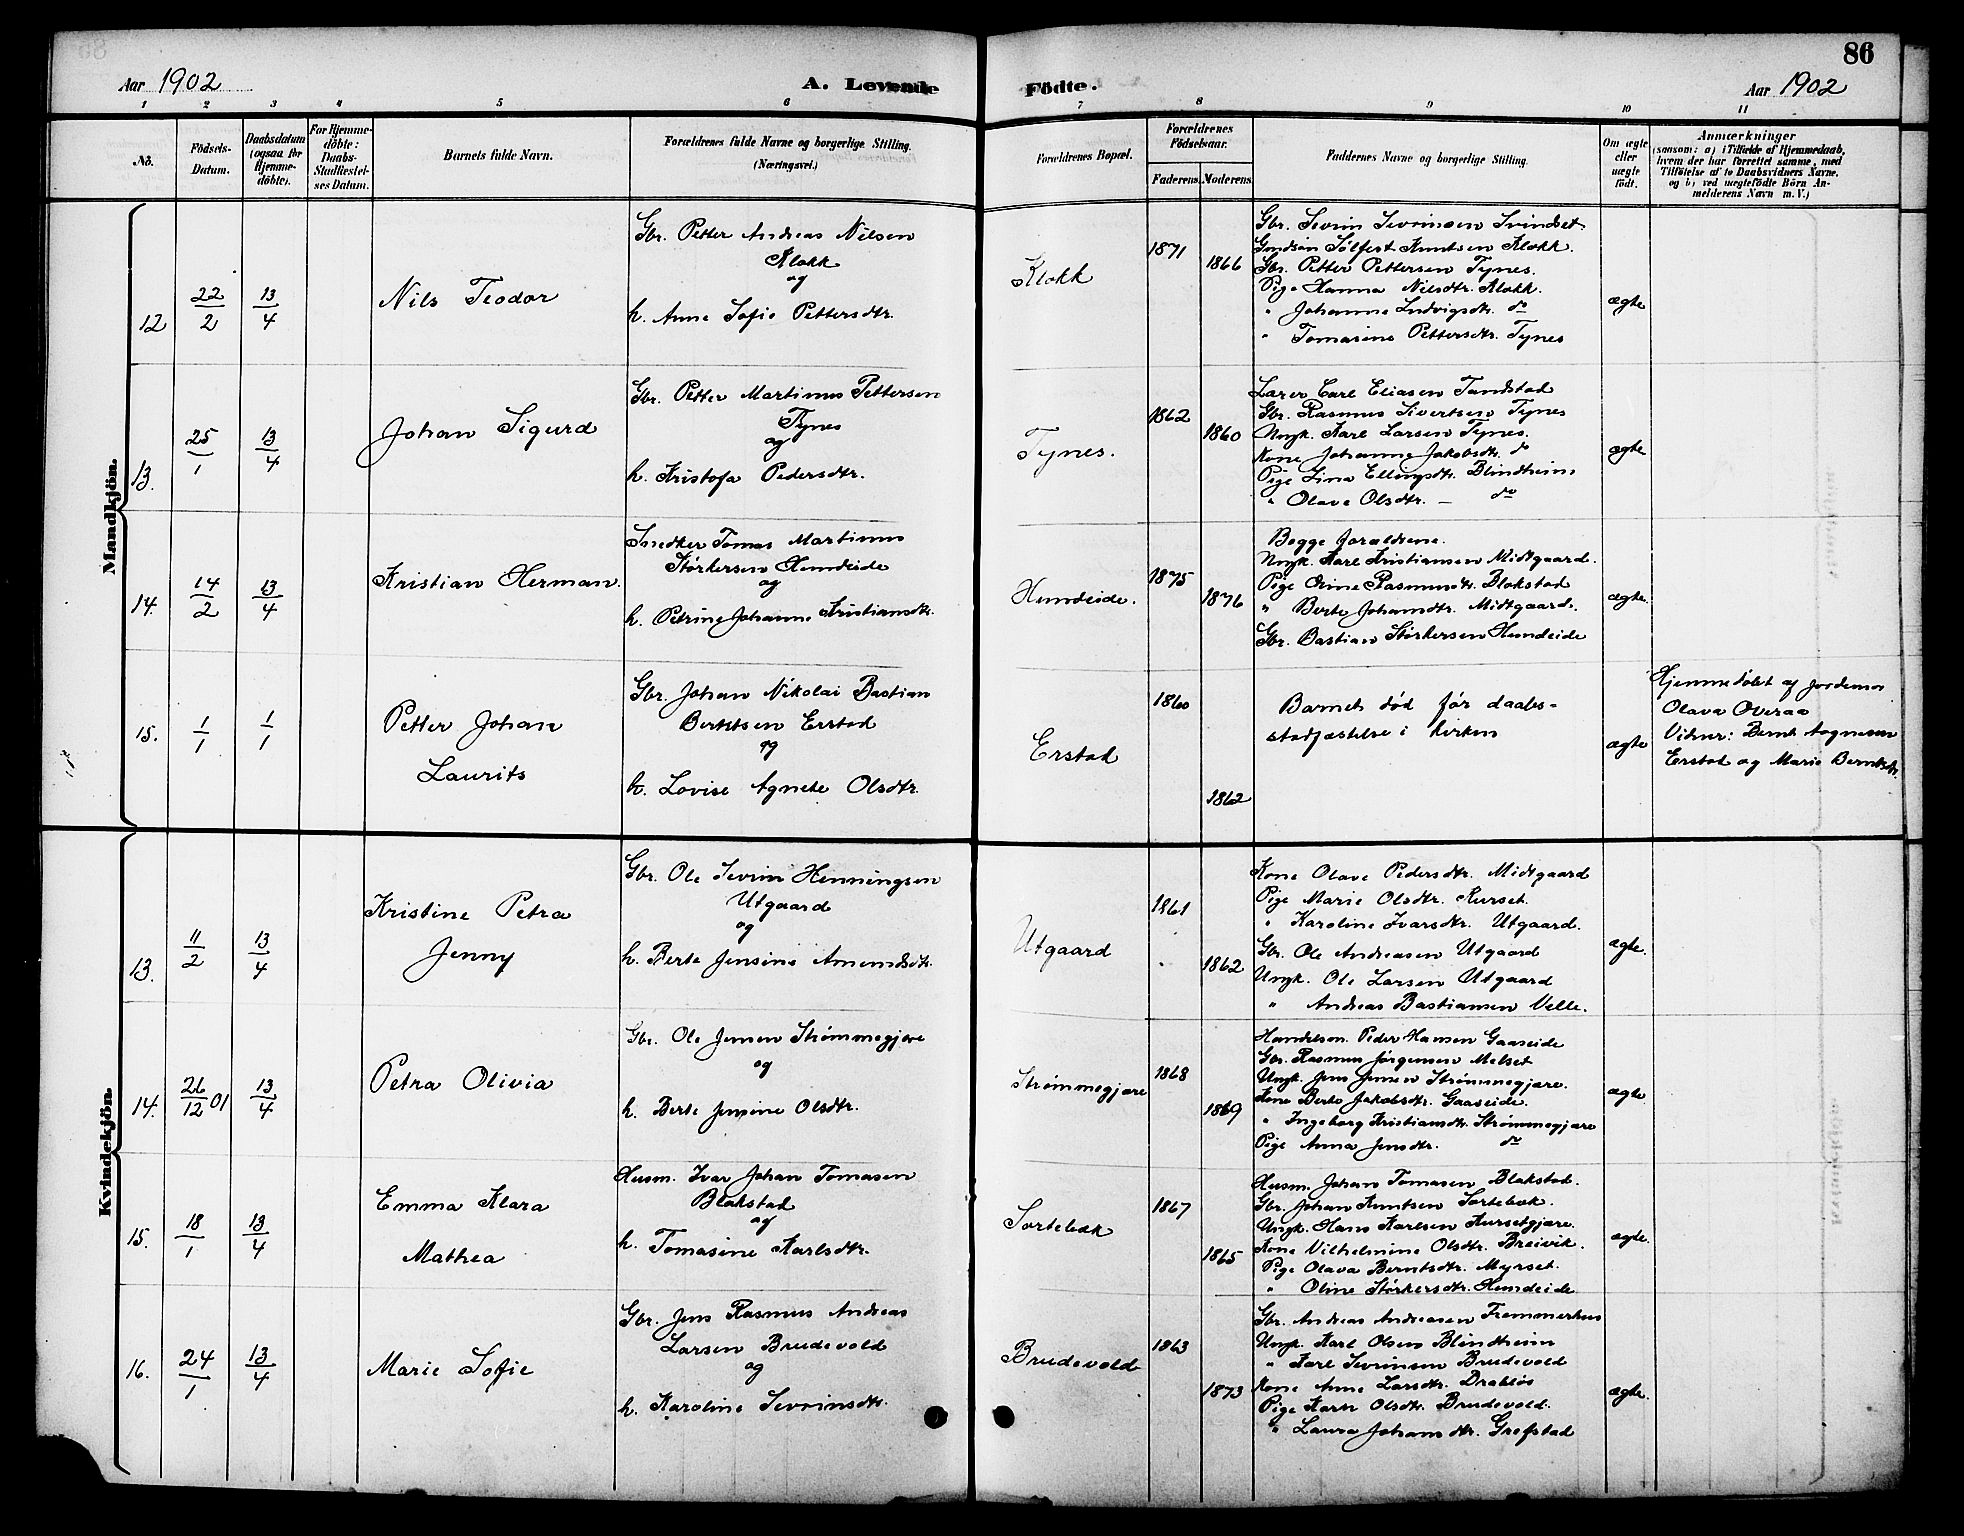 86
Aar 1902
A. Levende
Födte.
Aar 1902
1 2 3 4 5 6 7 8 9 10 11
No.
Födsels-
Datum.
Daabsdatum
(ogsaa for
Hjemme-
döbte).
For Hjemme-
döbte:
Daabs-
Stadfæstel-
ses Datum.
Barnets fulde Navn.
Forældrenes fulde Navne og borgerlige Stilling.
(Næringsvei.)
Forældrenes Bopæl.
Forældrenes
Födselsaar.
Faderens.
Moderens.
Faddernes Navne og borgerlige Stilling.
Om ægte
eller
uægte
födt.
Anmærkninger
(saasom: a) i Tilfælde af Hjemmedaab,
hvem der har forrettet samme, med
Tilföielse af to Daabsvidners Navne.
og b) ved uægtefödte Börn An-
melderens Navn m. V.)
Mandkjön.
12
22/2
13/4
Nils Teodor
Gbr. Petter Andreas Nilsen
Klokk
og
h. Anne Sofie Pettersdtr.
Klokk
1871
1866
Gbr. Sevrin Sevrinsen Svindset
Gmdsøn Sølfest Knutsen Klokk.
Gbr. Petter Pettersen Tynes.
Pige Hanna Nilsdtr. Klokk.
" Johanne Ludvigsdtr. do
" Tomasine Pettersdtr. Tynes
ægte
13.
25/1
13/4
Johan Sigurd
Gbr. Petter Martinus Pettersen
Tynes
og
h. Kristofa Pedersdtr.
Tynes.
1862
1860
Lærer Carl Eliasen Tandstad
Gbr. Rasmus Sivertsen Tynes
Ungk. Karl Larsen Tynes.
Kone Johanne Jakobsdtr. do
Pige Lina Ellingsdtr. Blindheim
" Olave Olsdtr. — do
ægte
14.
14/2
13/4
Kristian Herman.
Snedker Tomas Martinus
Størkersen Hundeide
og
h. Petrine Johanne Kristiansdtr.
Hundeide.
1875
1876
Begge forældrene.
Ungk. Karl Kristiansen Midtgaard.
Pige Oline Rasmusdtr. Blakstad
" Berte Johansdtr. Midtgaard.
Gbr. Bastian Størkersen Hundeide
ægte.
15.
1/1
1/1
Petter Johan
Laurits
Gbr. Johan Nikolai Bastian
Berntsen Erstad
og
h. Lovise Agnete Olsdtr.
Erstad
1860
1862
Barnet død før daabs-
stadfæstelse i kirken
ægte
Hjemmedøbt af jordemor
Olava Overaa
Vidner: Bernt Aagnesen
Erstad og Marie Berntsdtr.
Kvindekjön.
13.
11/2
13/4
Kristine Petra
Jenny
Gbr. Ole Sevrin Henningsen
Utgaard
og
h. Berte Jensine Amundsdtr.
Utgaard
1861
1862
Kone Olave Pedersdtr. Midtgaard
Pige Marie Olsdtr. Kurset.
" Karoline Ivarsdtr. Utgaard.
Gbr. Ole Andreasen Utgaard
Ungk. Ole Larsen Utgaard
" Andreas Bastiansen Velle.
ægte.
14.
26/12 01
13/4
Petra Olivia
Gbr. Ole Jensen Strømmegjære
og
h. Berte Jensine Olsdtr.
Strømmegjære
1868
1869
Handelsm. Peder Hansen Gaaseide
Gbr. Rasmus Jørgensen Melset
Ungk. Jens Jensen Strømmegjære.
Kone Berte Jakobsdtr. Gaaseide.
" Ingeborg Kristiansdtr. Strømmegjære
Pige Anna Jensdtr. do
ægte.
15.
18/1
13/4
Emma Klara
Mathea
Husm. Ivar Johan Tomasen
Blakstad
og
h. Tomasine Karlsdtr.
Sortebæk
1867
1865
Husm. Johan Tomasen Blakstad.
Gbr. Johan Knutsen Sortebæk.
Ungk. Hans Karlsen Kursetgjære.
Kone Vilhelmine Olsdtr. Breivik.
Pige Olava Berntsdtr. Myrset.
" Oline Størkersdtr. Hundeide
ægte.
16.
24/1
13/4
Marie Sofie
Gbr. Jens Rasmus Andreas
Larsen Brudevold
og
h. Karoline Sevrinsdtr.
Brudevold
1863
1873
Gbr. Andreas Andreasen Fremmerhus
Ungk. Karl Olsen Blindheim
" Karl Sevrinsen Brudevold
Kone Anne Larsdtr. Drabløs
Pige Karn Olsdtr. Brudevold.
" Laura Johansdtr. Grefstad
ægte.